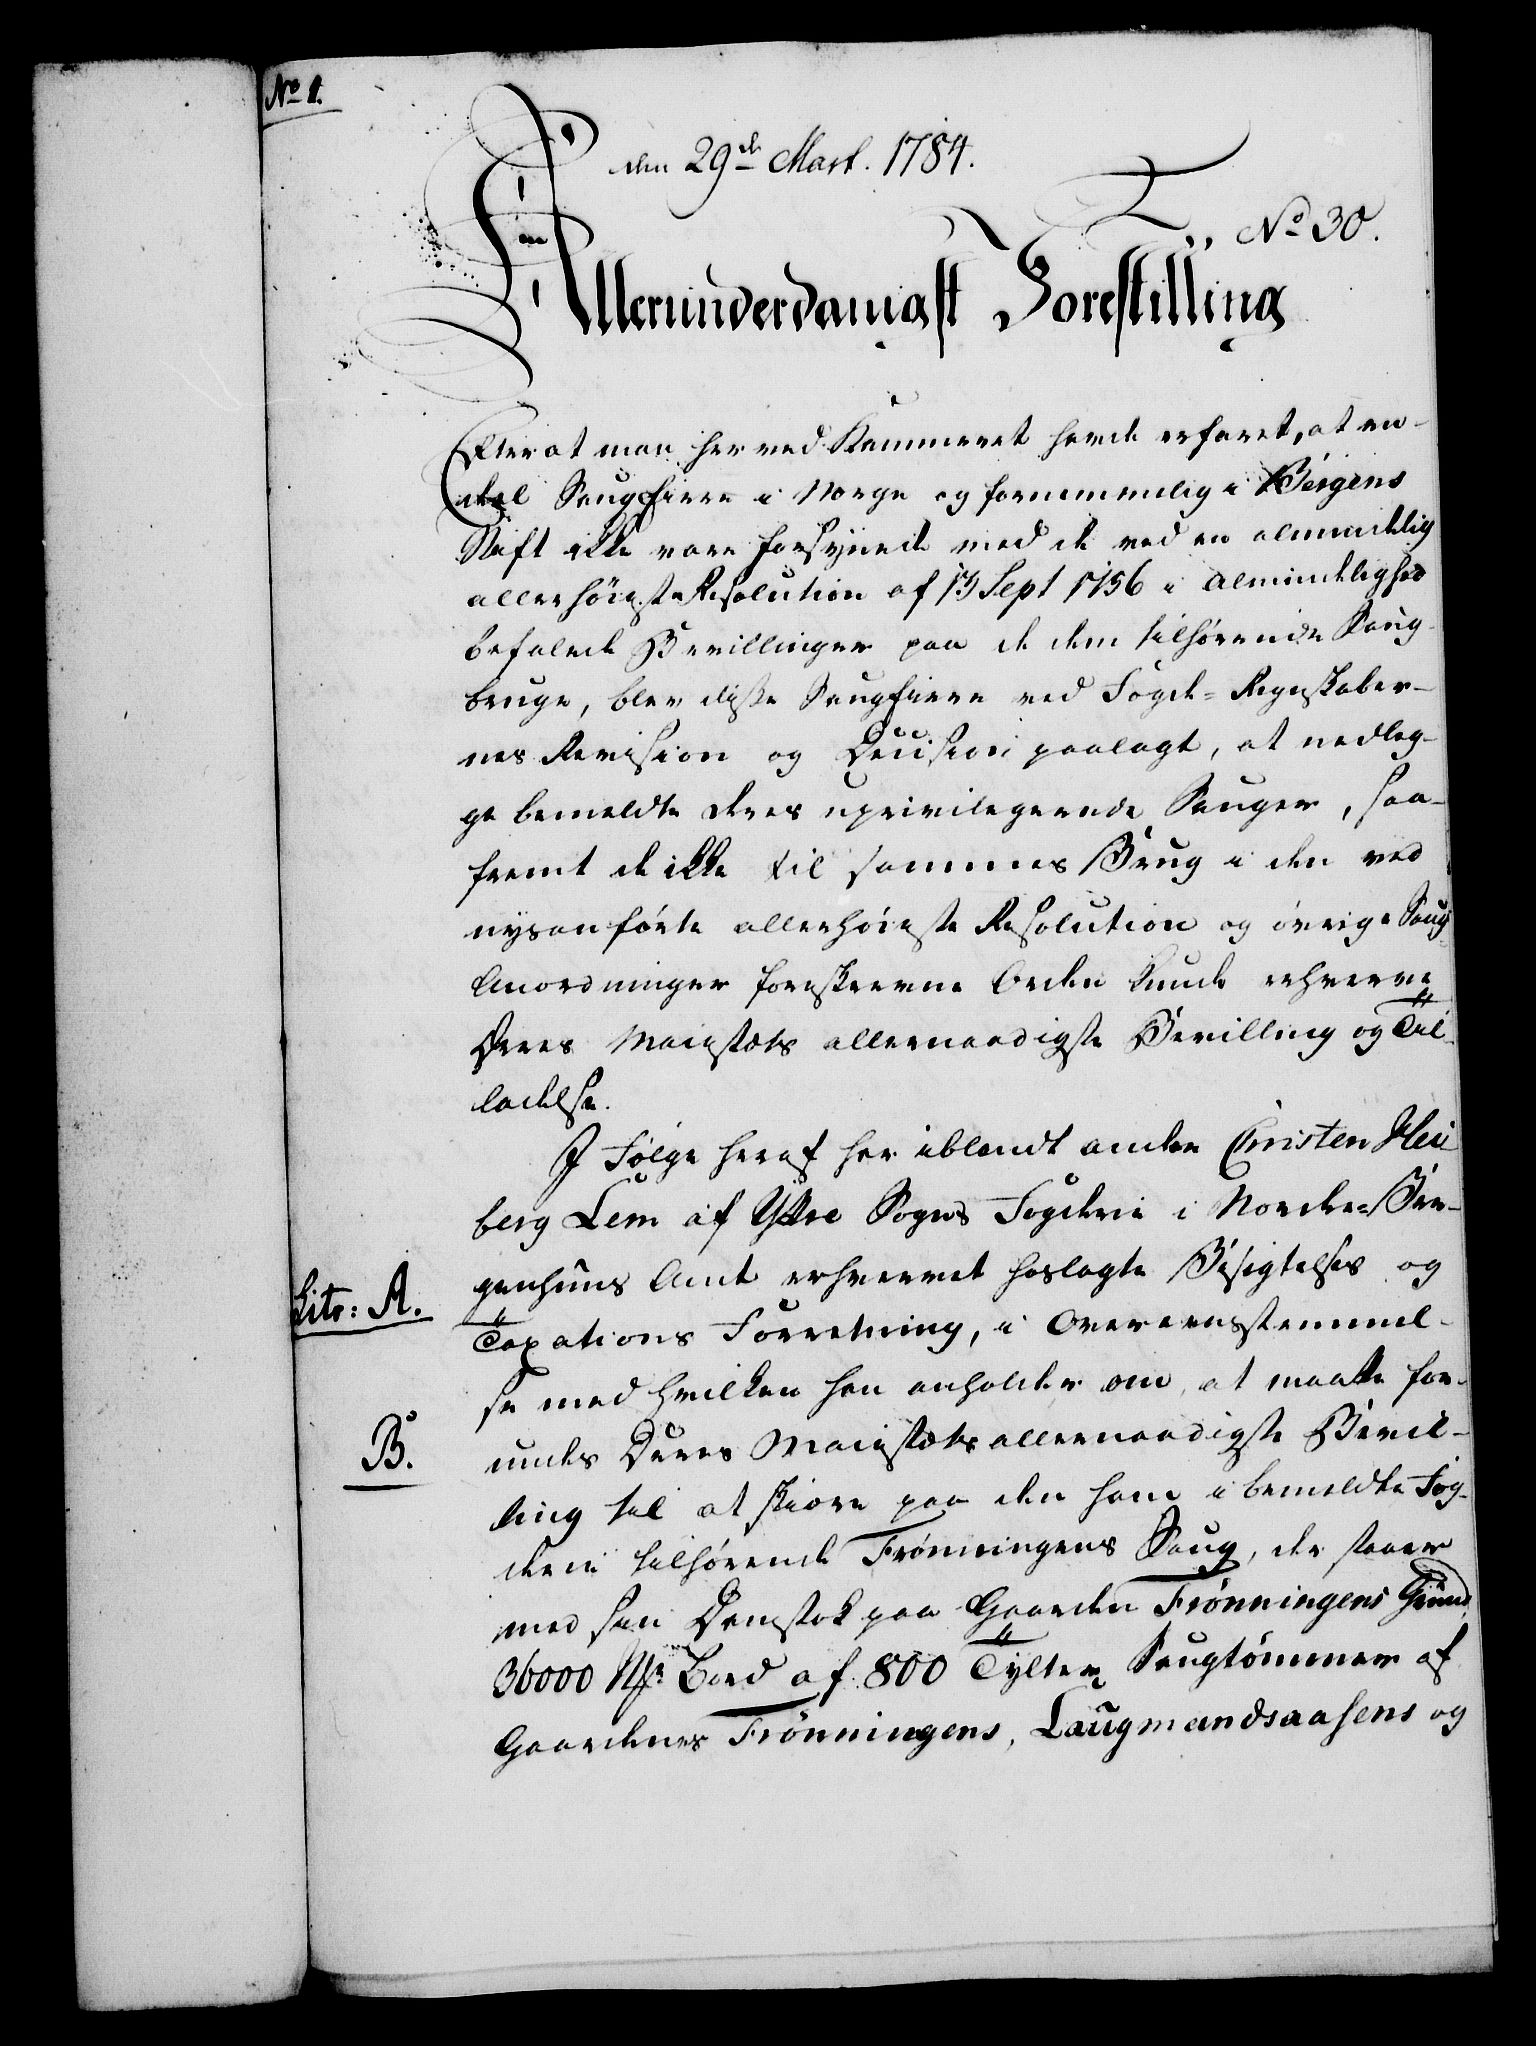 No 1.
den 29de Mart. 1784.
No 30.
Allerunderdanigst Forestilling
Efter at man her ved Kammeret havde erfaret, at en-
deel Saugeiere i Norge og fornemmelig i Bergens
Stift ikke vare forsynede med de ved en almindelig
allerhöieste Resolution af 13 Sept 1756 i Almindelighed
befalede Bevillinger paa de dem tilhörende Saug-
bruge, blev disse Saugeiere ved Foged-Regnskaber-
nes Revision og Decision paalagt, at nedleg-
ge bemeldte deres uprivilegerede Sauger, saa-
fremt de ikke til sammes Brug i den ved
nysanförte allerhöieste Resolution og övrige Saug-
Anordninger foreskrevne Orden kunde erhverve
Deres Maiestæts allernaadigste Bevilling og Til-
ladelse.
I Fölge heraf har iblandt andre Christen Hei-
berg Lem af Yttre Sogns Fogderie i Nordre-Ber-
genhuus Amt erhvervet hoslagte Besigtelses og
Litr: A.
Taxations Forretning, i Overeensstemmel-
se med hvilken han anholder om, at maatte for-
B.
undes Deres Maiestæts allernaadigste Bevil-
ling til at skiære paa den ham i bemeldte Fog-
derie tilhörende Frönningens Saug, der staaer
med sin Damstok paa Gaarden Frönningens Grund,
36000 Bord af 800 Tylter Saugtömmer af
Gaardenes Frönningens, Laugmandsaasens og